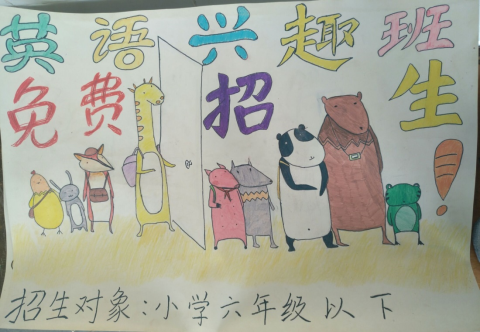 英语兴趣班
免费招生!
招生对象:小学六年级以下